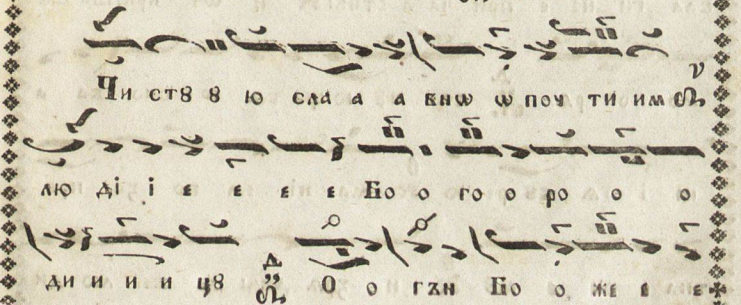 Чи стꙋ ꙋ ю сла а а внѡ ѡ поч ти им
лю ді і е е е е Бо о го о ро о о
ди и и и цꙋ О о гън Бо о же е е